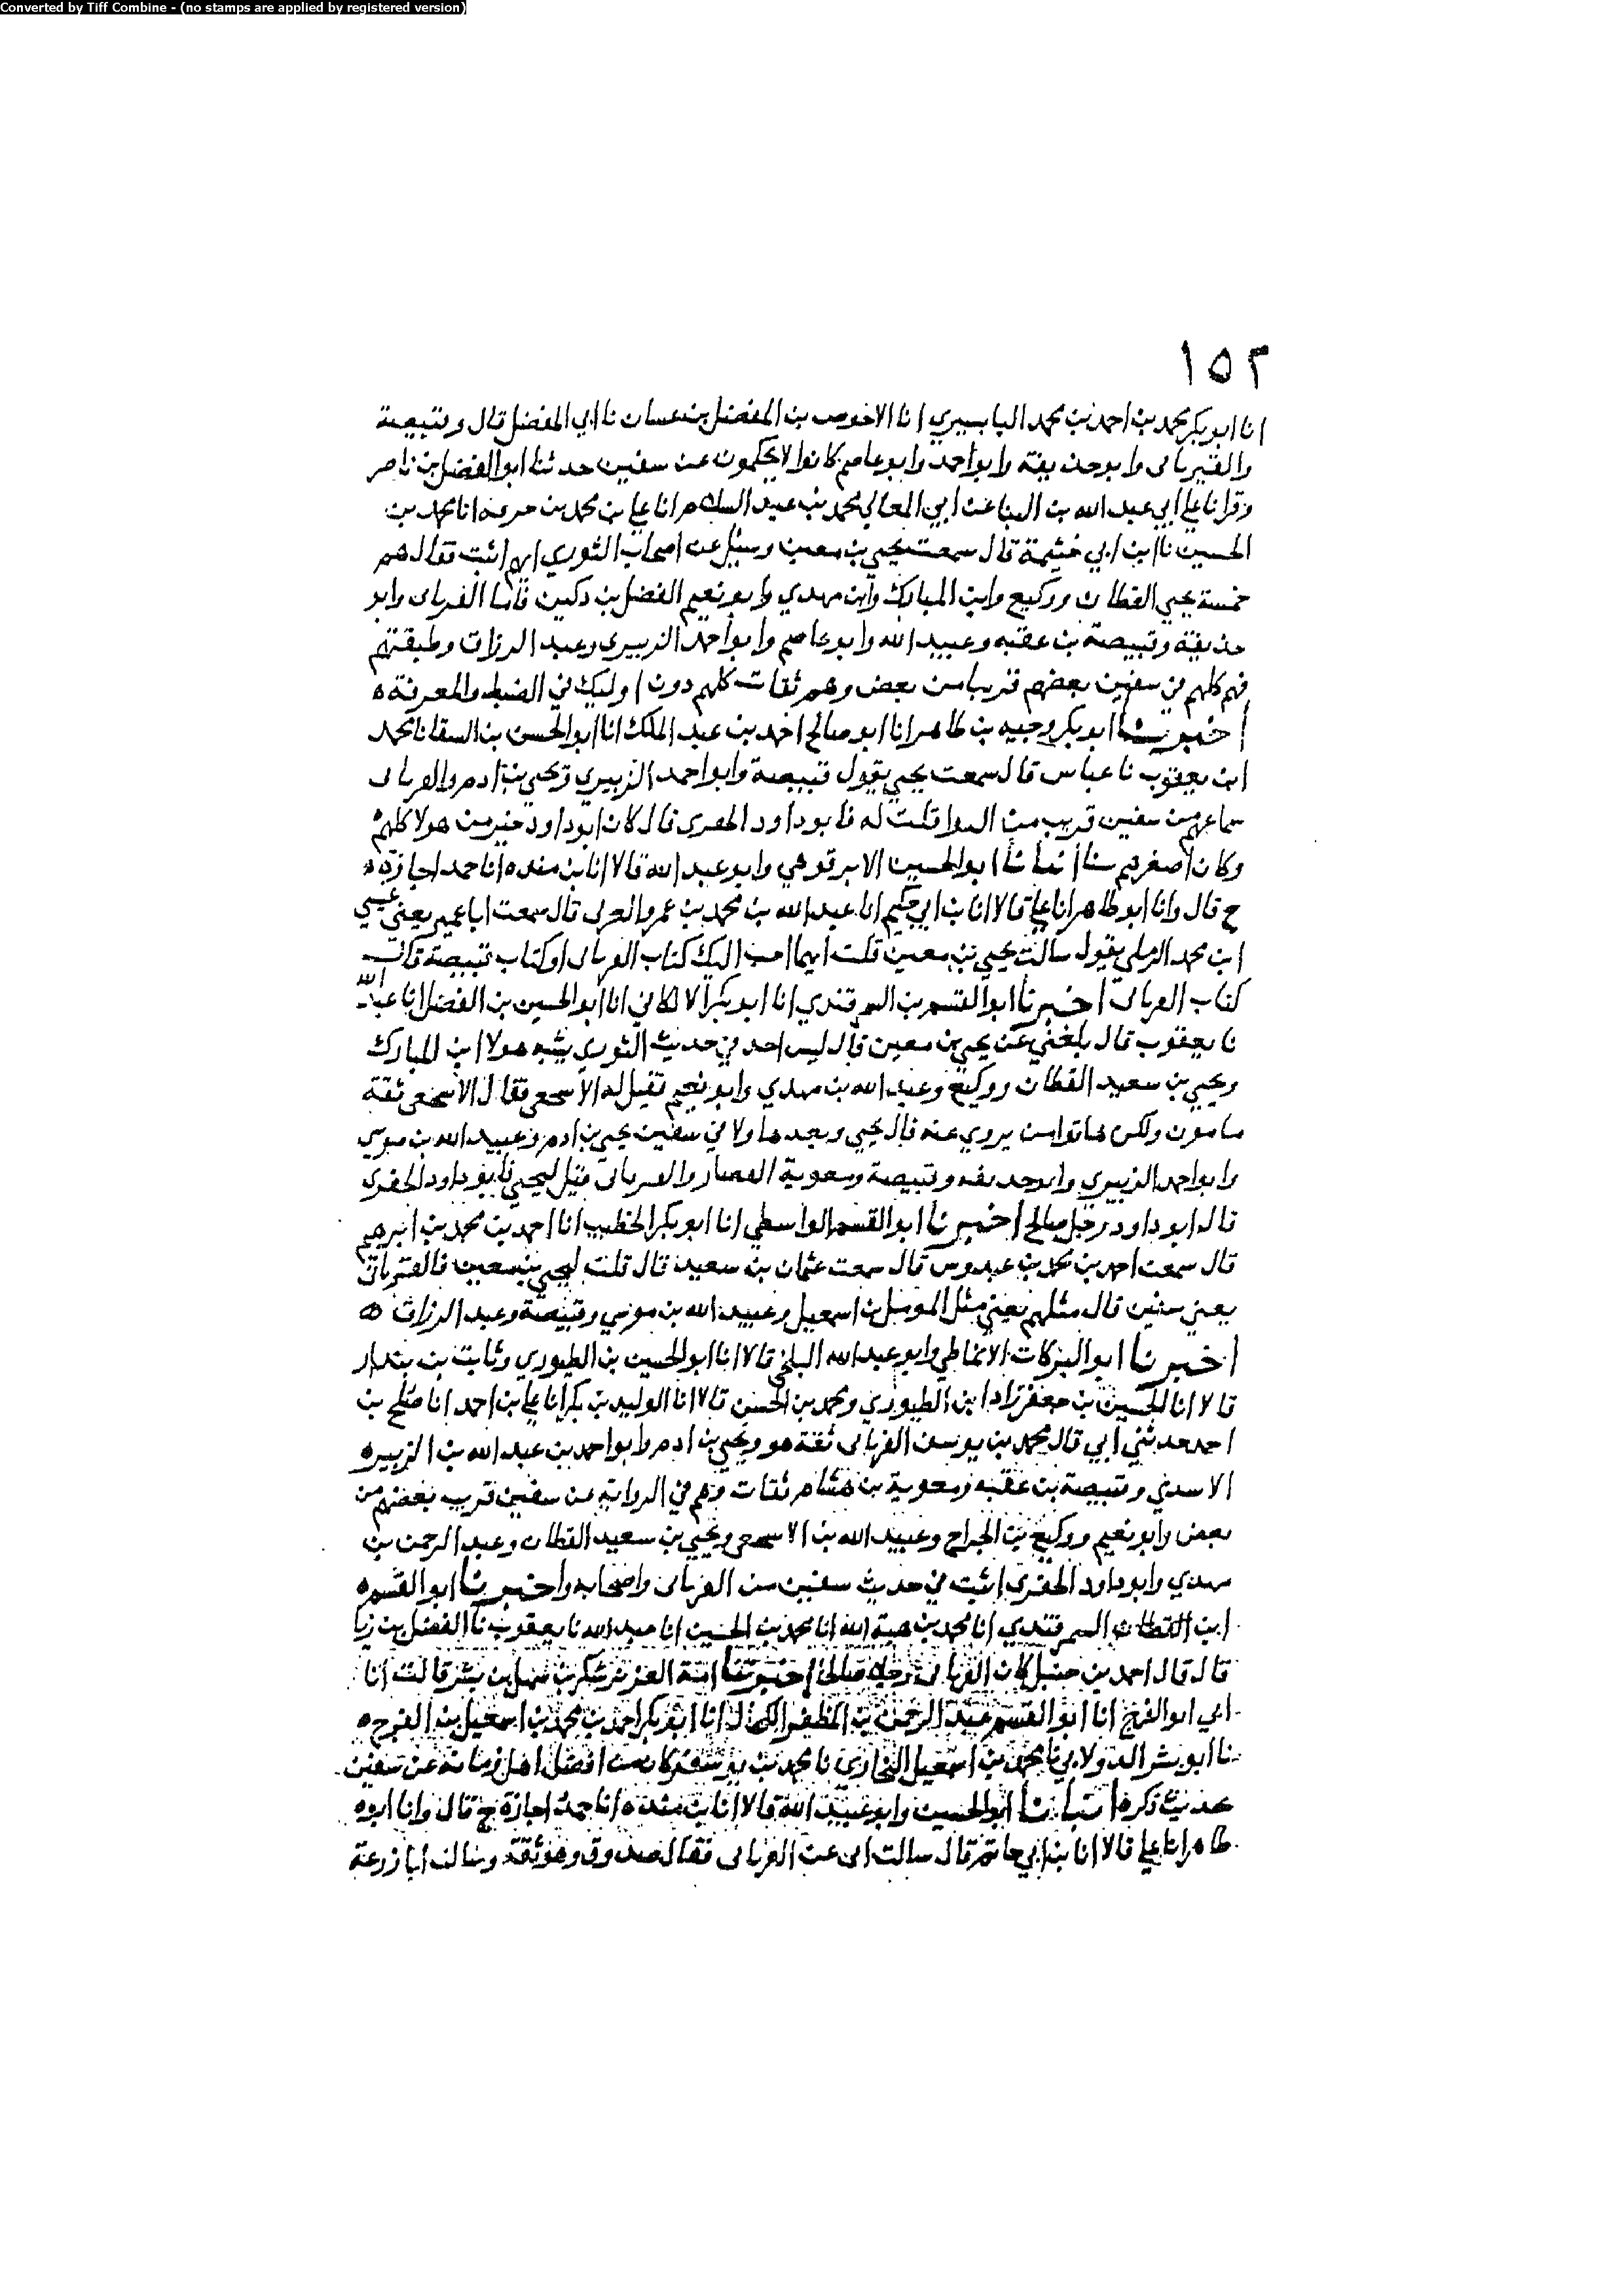 Converted by Tiff Combine - (no stamps are applied by registered version)
١٥٢
انا ابو بكر محمد بن احمد بن محمد البابسيري انا الاخوص بن المفضل بن غسان نا ابي المفضل قال وقبيصة
والفريابى وابو حذيفة وابو احمد وابو عاصم كانوا لا يحكمون عن سفين حدثنا ابو الفضل بن ناصر
وقرانا علي ابي عبد الله بن البنا عن ابي المعالي محمد بن عبد السلام انا علي بن محمد بن خزفة انا محمد بن
الحسين نا ابن ابي خثيمة قال سمعت يحيى بن معين وسئل عن اصحاب الثوري ايهم اثبت فقال هم
خمسة يحيي القطان ووكيع وابن المبارك وابن مهدي وابو نعيم الفضل بن دكين فاما الفريابى وابو
حذيفة وقبيصة بن عقبه وعبيد الله وابو عاصم وابو احمد الزبيري وعبد الرزاق وطبقتهم
فهم كلهم في سفين بعضهم قريبا من بعض وهم ثقات كلهم دون اوليك في الضبط والمعرفة ه
اخبرنا ابو بكر وجيه بن طاهر انا ابو صالح احمد بن عبد الملك انا ابو الحسن بن السقا نا محمد
ابن يعقوب نا عباس قال سمعت يحيي يقول قبيصة وابو احمد الزبيري ويحيى بن ادم والفريابى
سماعهم من سفين قريب من السوا قلت له فابو داود الحفرى قال كان ابو داود خير من هولا كلهم
وكان اصغرهم سنا انبانا ابو الحسين الابرقوهي وابو عبد الله قالا انا ابن منده انا حمد اجازة ه
ح قال وانا ابو طاهر انا علي قالا انا بن ابي حكيم انا عبد الله بن محمد بن عمرو الغزى قال سمعت ابا عمير يعنى عيسي
ابن محمد الرملي يقول سالت يحيى بن معين قلت ايهما احب اليك كتاب الفريابى او كتاب قبيصة قال
كتاب الفريابى اخبرنا ابو القسم بن السمرقندي انا ابو بكر الالكاني انا ابو الحسين بن الفضل انا عبد الله
نا يعقوب قال بلغني عن يحيى بن معين قال ليس احد في حديث الثوري يشبه هولا ابن المبارك
ويحيي بن سعيد القطان ووكيع وعبد الله بن مهدي وابو نعيم فقيل له الاسجعى فقال الاسجعى ثقة
مامون ولكن هاتوا من يروي عنه قال يحيي وبعدها ولا في سفين يحيى بن ادم وعبيد الله بن موسي
وابو احمد الزبيري وابو حذيفه وقبيصة ومعوية القصار والفريابى قيل ليحيي فابو داود الحفري
قال ابو داود رجل صالح اخبرنا ابو القسم الواسطي انا ابو بكر الخطيب انا احمد بن محمد بن ابرهيم
قال سمعت احمد بن محمد بن عبدوس قال سمعت عثمان بن سعيد قال قلت ليحيى بن معين فالفريابى
يعني سفين قال مثلهم يعني مثل المومل بن اسمعيل وعبيد الله بن موسي وقبيصة وعبد الرزاق ه
اخبرنا ابو البركات الانماطي وابو عبد الله البلخى قالا انا ابو الحسين بن الطيوري وثابت بن بندار
قالا انا الحسين بن جعفر زاد ابن الطيوري ومحمد بن الحسن قالا انا الوليد بن بكر انا علي بن احمد انا صالح بن
احمد حدثني ابي قال محمد بن يوسف الفريابى ثقة هو ويحيى بن ادم وابو احمد بن عبد الله بن الزبير ه
الاسدي وقبيصة بن عقبه ومعوية بن هشام ثقات وهم في الرواية عن سفين قريب بعضهم من
بعض وابو نعيم ووكيع بن الجراح وعبيد الله بن الاسجعى ويحيى بن سعيد القطان وعبد الرحمن بن
مهدي وابو داود الحفرى اثبت في حديث سفين من الفريابى واصحابه واخبرنا ابو القسم ه
ابن القطان السمرقندي انا محمد بن هبة الله انا محمد بن الحسين انا عبد الله نا يعقوب نا الفضل بن زيا
قال قال احمد بن حنبل كان الفريابى رجلا صالحا اخبرتنا امة العزيز شكر بن سهل بن بشر قالت انا
ابي ابو الفرج انا ابو القسم عبد الرحمن بن المظفر الكحال انا ابو بكر احمد بن محمد بن اسمعيل بن الفرج ه
نا ابو بشر الدولابي نا محمد بن اسمعيل البخاري نا محمد بن يوسف كان من افضل اهل زمانه عن سفين
حديث ذكره انبانا ابو الحسين وابو عبد الله قالا انا بن منده انا حمد اجازة ح قال وانا ابو ه
طاهر انا علي قالا انا بن ابي حاتم قال سالت ابى عن الفريابى فقال صدوق وهو ثقة وسالت ابا زرعة